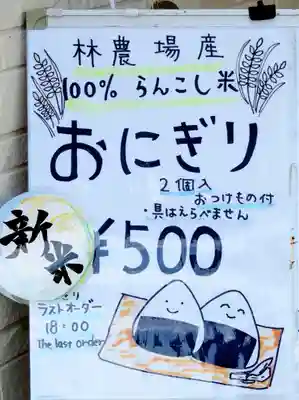 林農場産
100% らんこし米
おにぎり
2個入
おつけもの付
・具はえらべません
¥500
新米
ラストオーダー
18:00
The last order